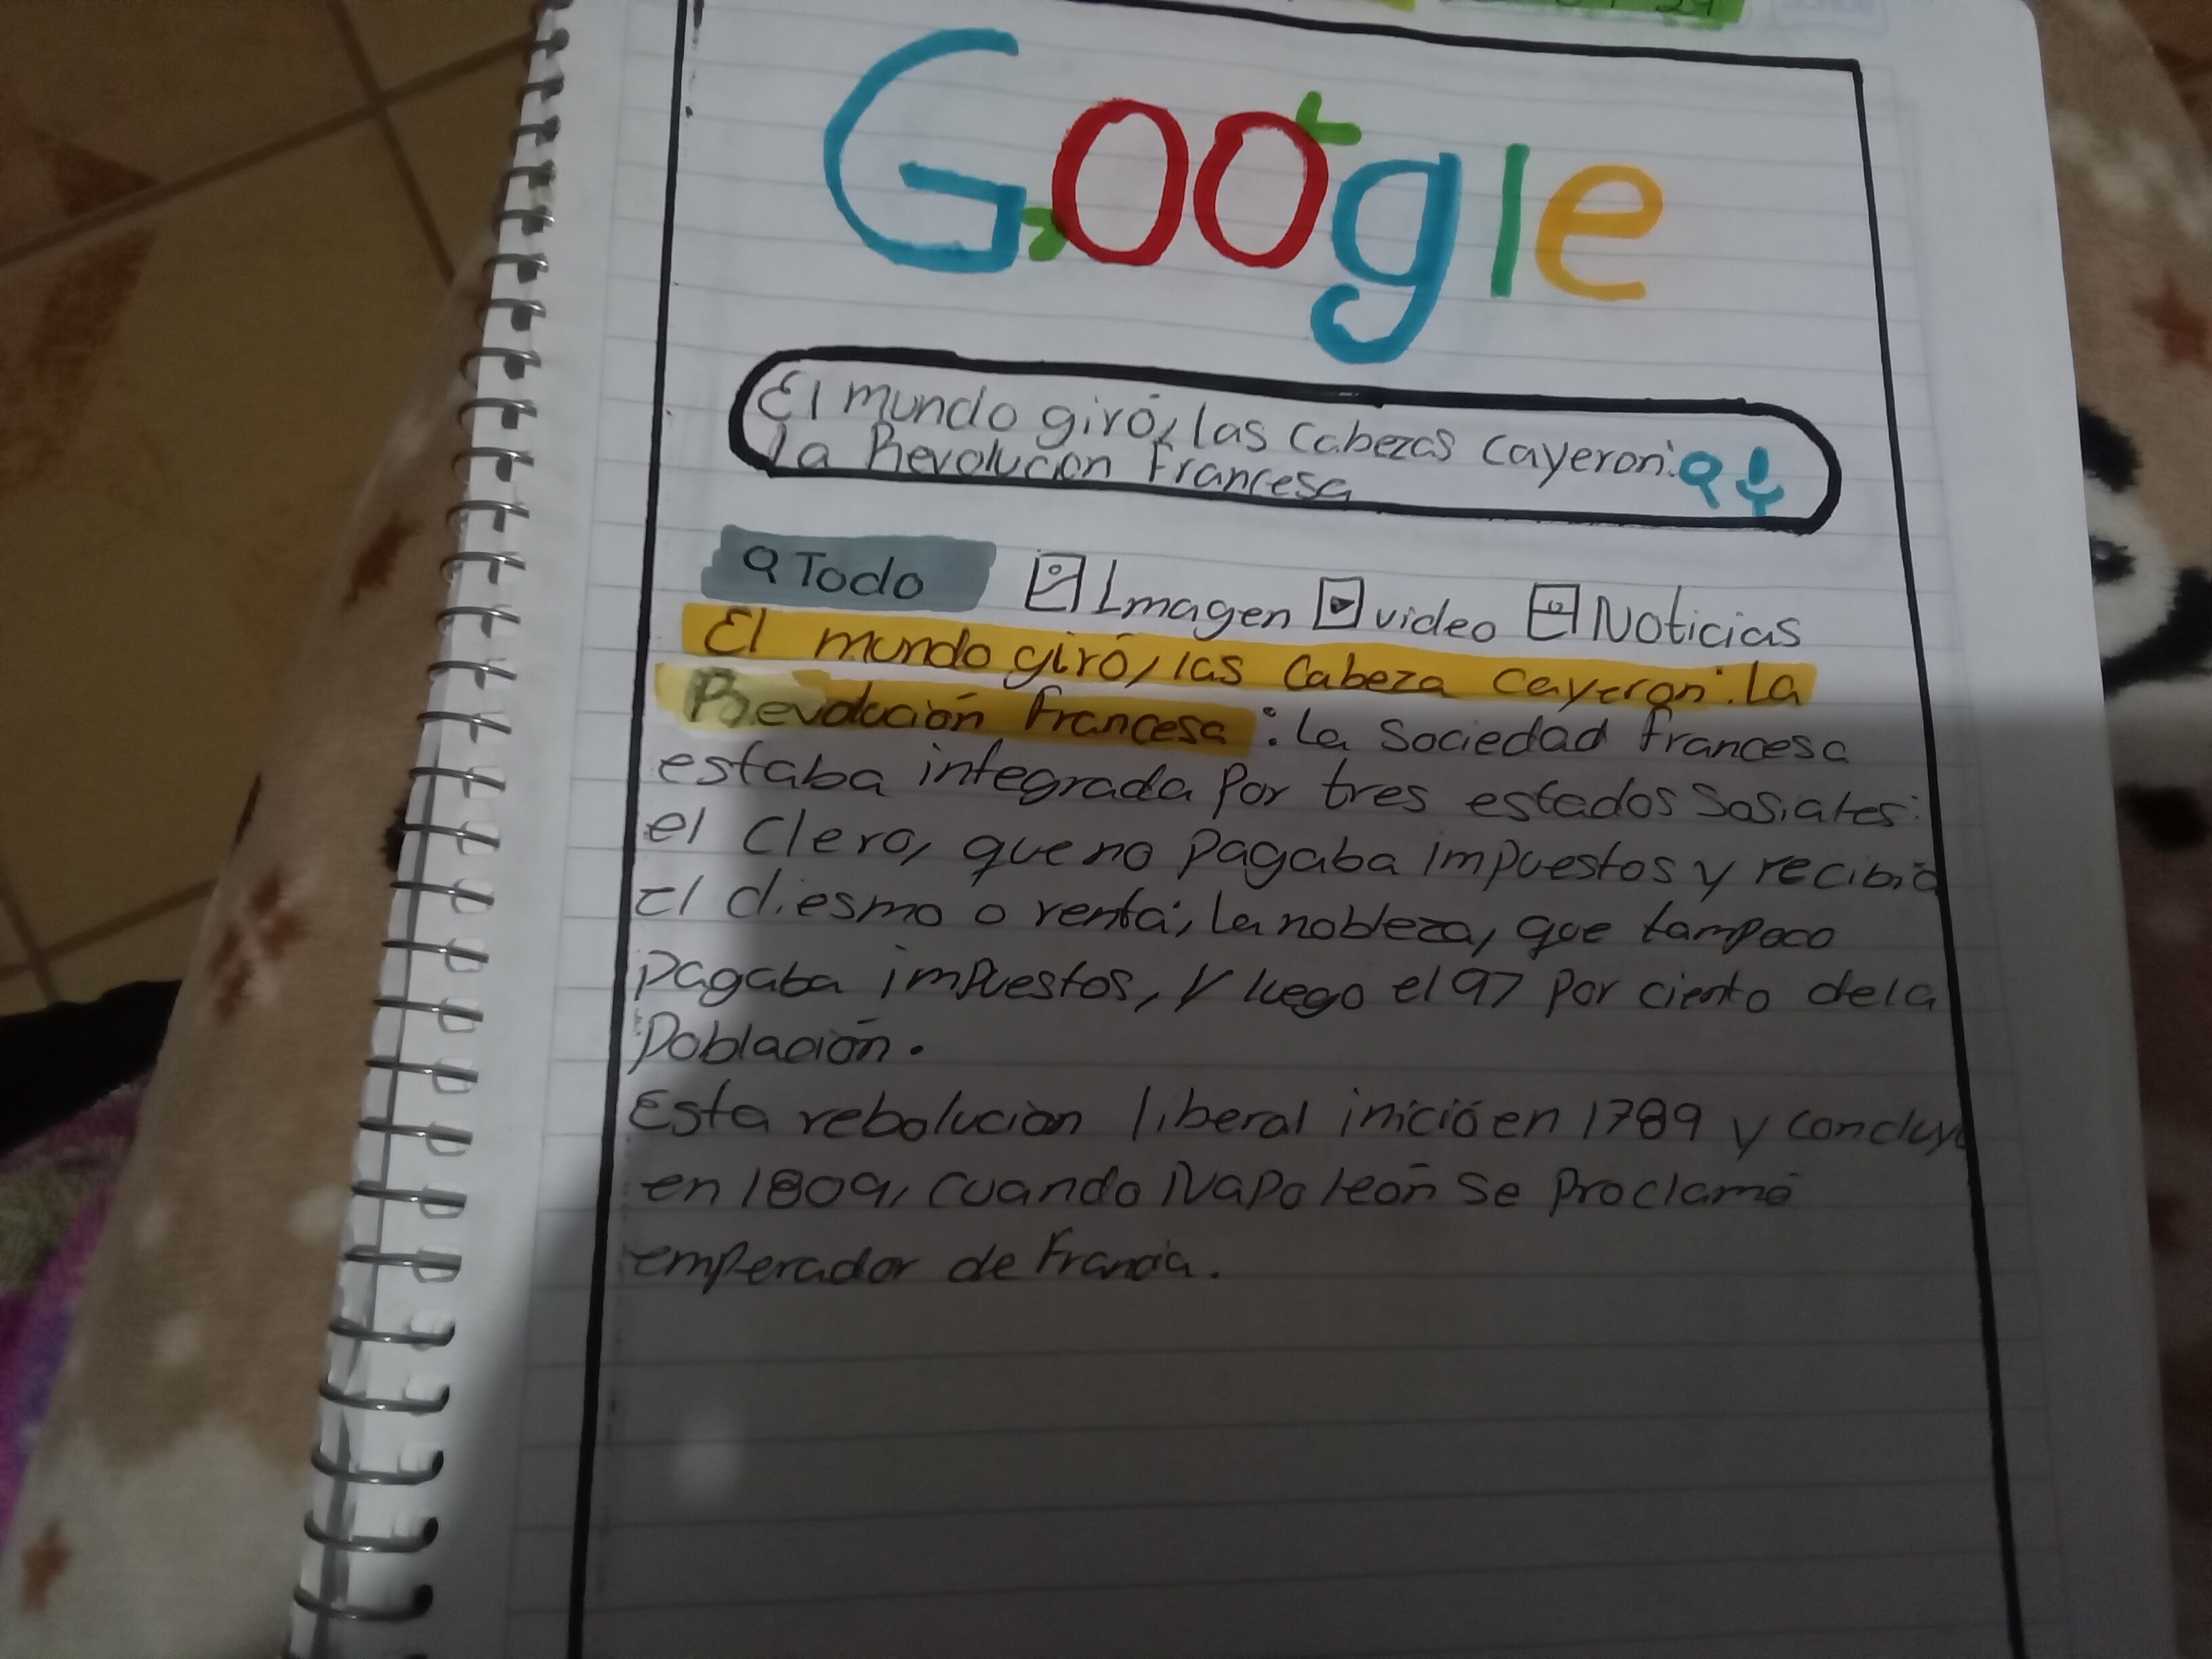 Google
El mundo giró, las Cabezas Cayeron:
la Revolución Francesa
Todo Imagen video Noticias
El mundo giró, las Cabeza Cayeron: la
Revolución Francesa: la Sociedad francesa
estaba integrada Por tres estados Sosiales:
el Clero, que no Pagaba impuestos y recibia
El diesmo o renta; la nobleza, que tampoco
Pagaba impuestos, y luego el 97 Por ciento de la
Población.
Esta rebolución liberal inició en 1789 y concluyó
en 1809, cuando Napoleón se Proclamó
emperador de Francia.